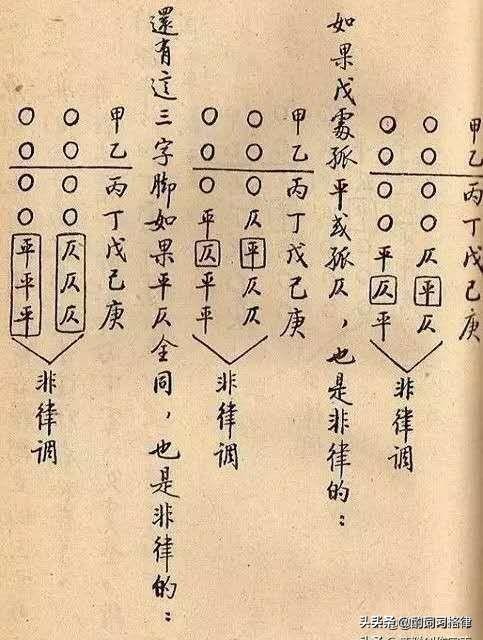 甲乙丙丁戊己庚
○○○○仄平仄
○○○○平仄平
非律调
如果戊處孤平或孤仄，也是非律的：
甲乙丙丁戊己庚
○○○仄平仄仄
○○○平仄平平
非律调
還有這三字脚如果平仄全同，也是非律的：
甲乙丙丁戊己庚
○○○○仄仄仄
○○○○平平平
非律调
头条 @词格律